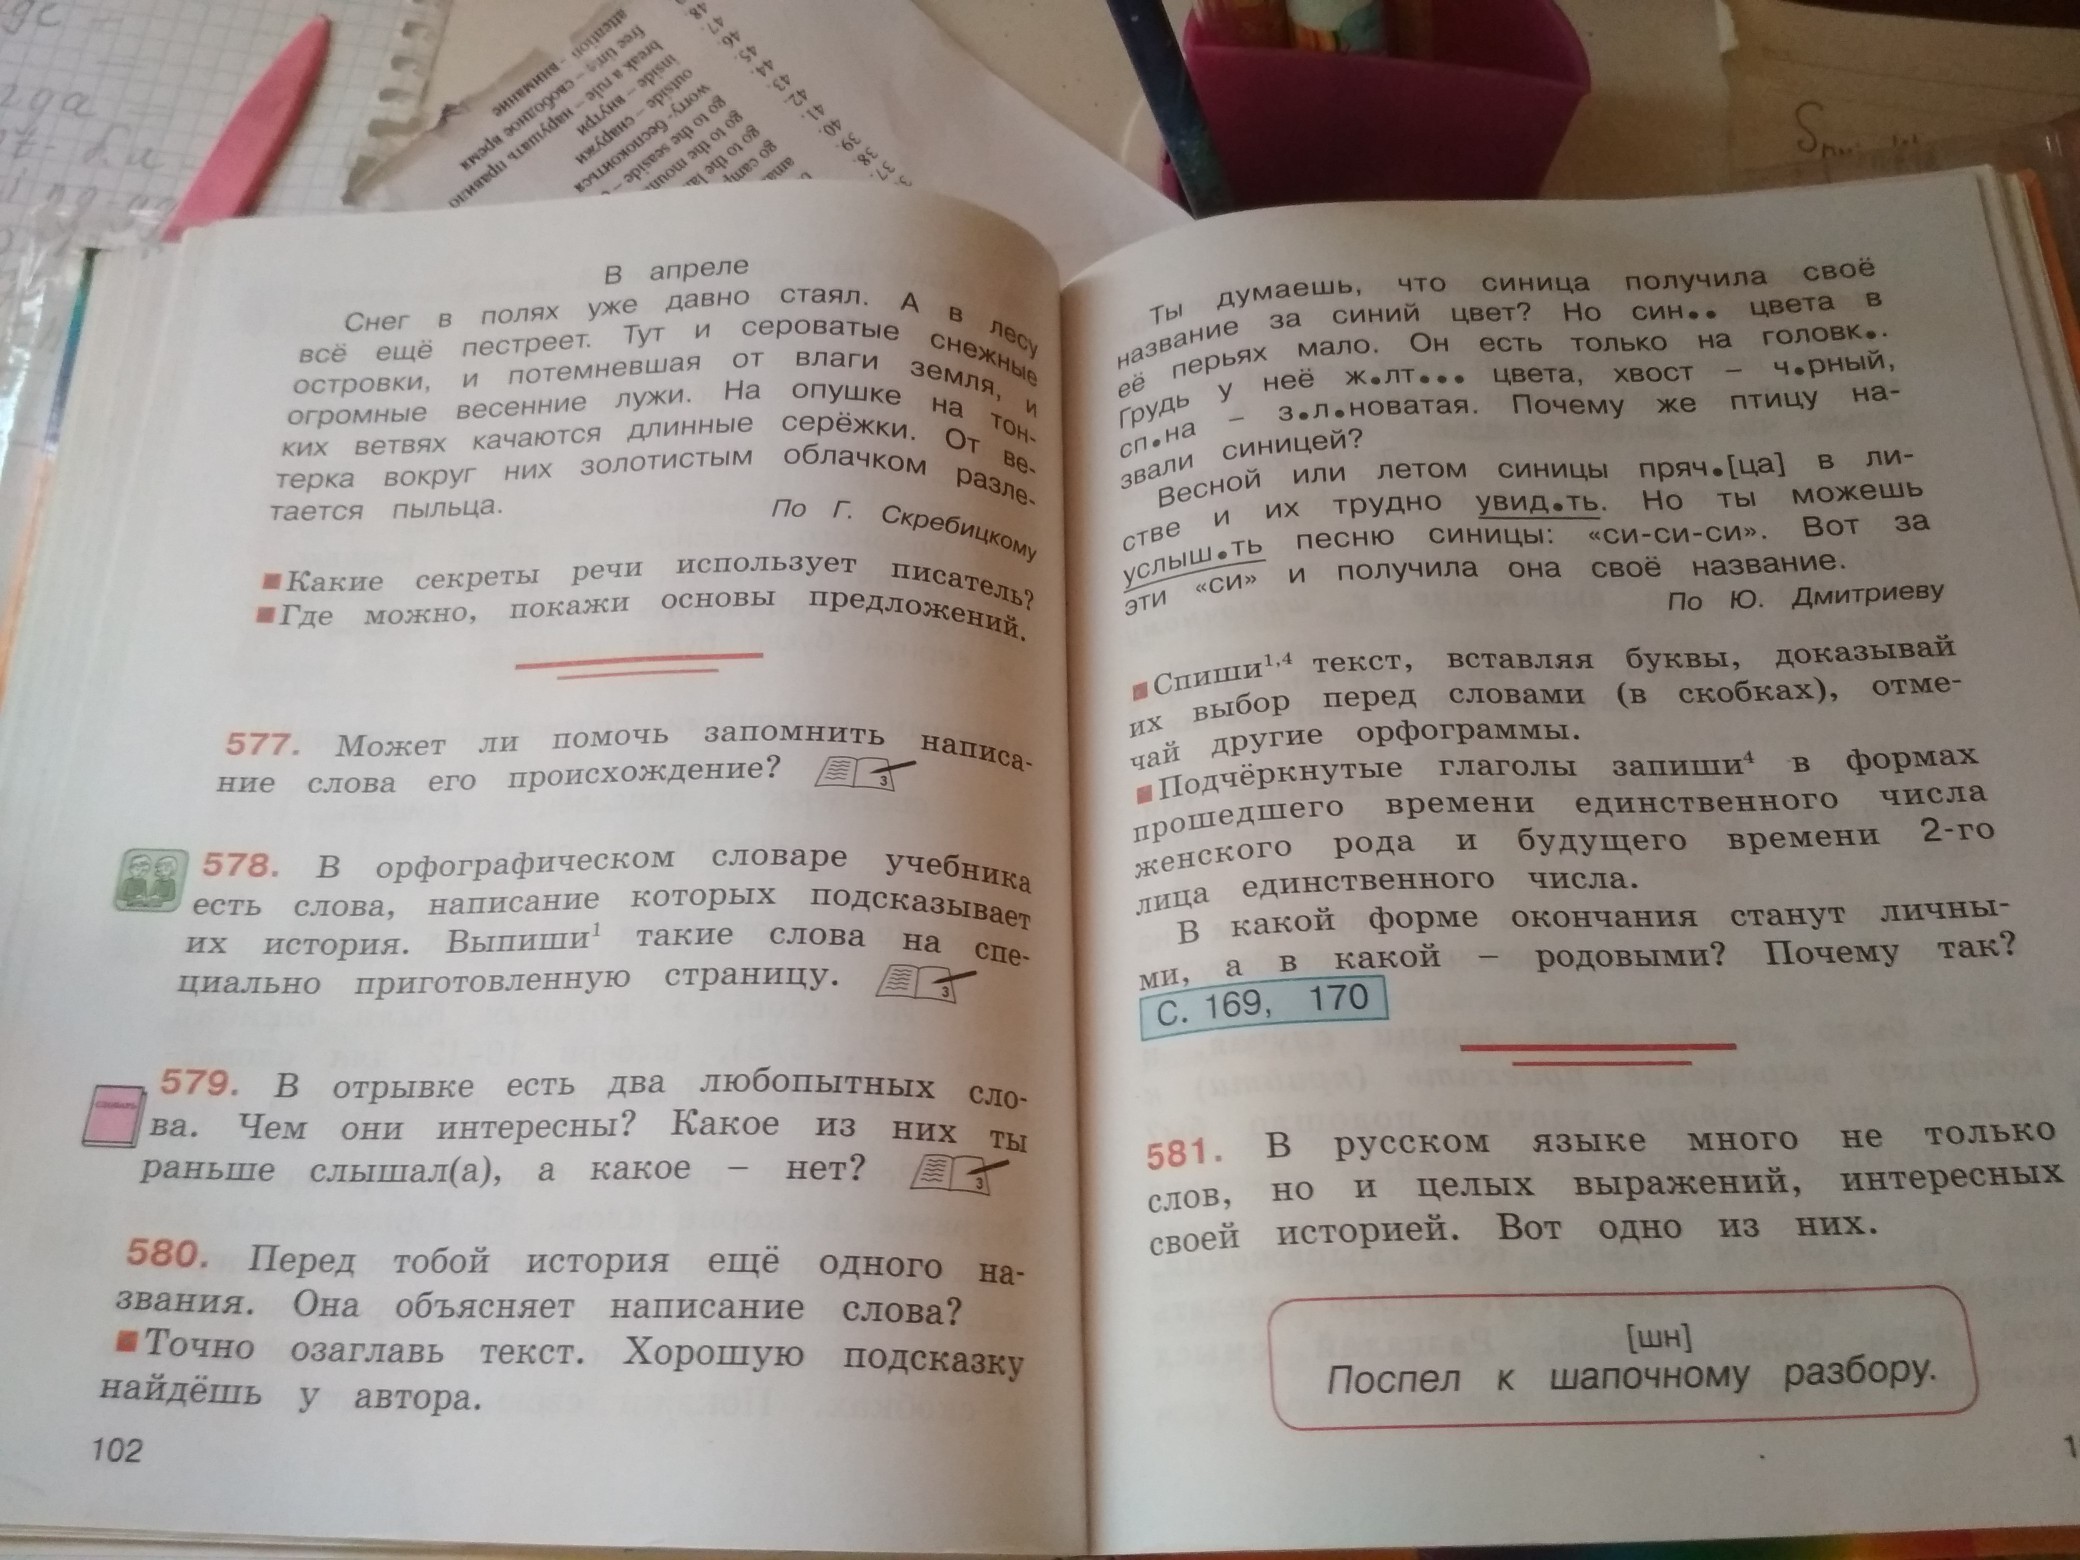 attention - внимание
free time – свободное время
break a rule – нарушать правило
inside – внутри
outside – снаружи
worry- беспокоиться
go to the seaside –
go to the
go to the
go
48.
47.
46.
45.
44.
43.
42.
41.
40.
39.
38.
37.
В апреле
Снег в полях уже давно стаял. А в лесу
всё ещё пестреет. Тут и сероватые снежные
островки, и потемневшая от влаги земля, и
огромные весенние лужи. На опушке на тон-
ких ветвях качаются длинные серёжки. От ве-
терка вокруг них золотистым облачком разле-
тается пыльца.
По Г. Скребицкому
Какие секреты речи использует писатель?
Где можно, покажи основы предложений.
577. Может ли помочь запомнить написа-
ние слова его происхождение?
3
578. В орфографическом словаре учебника
есть слова, написание которых подсказывает
их история. Выпиши¹ такие слова на спе-
циально приготовленную страницу.
3
579. В отрывке есть два любопытных сло-
ва. Чем они интересны? Какое из них ты
раньше слышал(а), а какое – нет?
3
СЛОВАРЬ
580. Перед тобой история ещё одного на-
звания. Она объясняет написание слова?
Точно озаглавь текст. Хорошую подсказку
найдёшь у автора.
102
Ты думаешь, что синица получила своё
название за синий цвет? Но син•• цвета в
её перьях мало. Он есть только на головк•.
Грудь у неё ж•лт••• цвета, хвост – ч•рный,
сп•на – з•л•новатая. Почему же птицу на-
звали синицей?
Весной или летом синицы пряч•[ца] в ли-
стве и их трудно увид•ть. Но ты можешь
услыш•ть песню синицы: «си-си-си». Вот за
эти «си» и получила она своё название.
По Ю. Дмитриеву
Спиши¹,⁴ текст, вставляя буквы, доказывай
их выбор перед словами (в скобках), отме-
чай другие орфограммы.
Подчёркнутые глаголы запиши⁴ в формах
прошедшего времени единственного числа
женского рода и будущего времени 2-го
лица единственного числа.
В какой форме окончания станут личны-
ми, а в какой – родовыми? Почему так?
С. 169, 170
581. В русском языке много не только
слов, но и целых выражений, интересных
своей историей. Вот одно из них.
[шн]
Поспел к шапочному разбору.